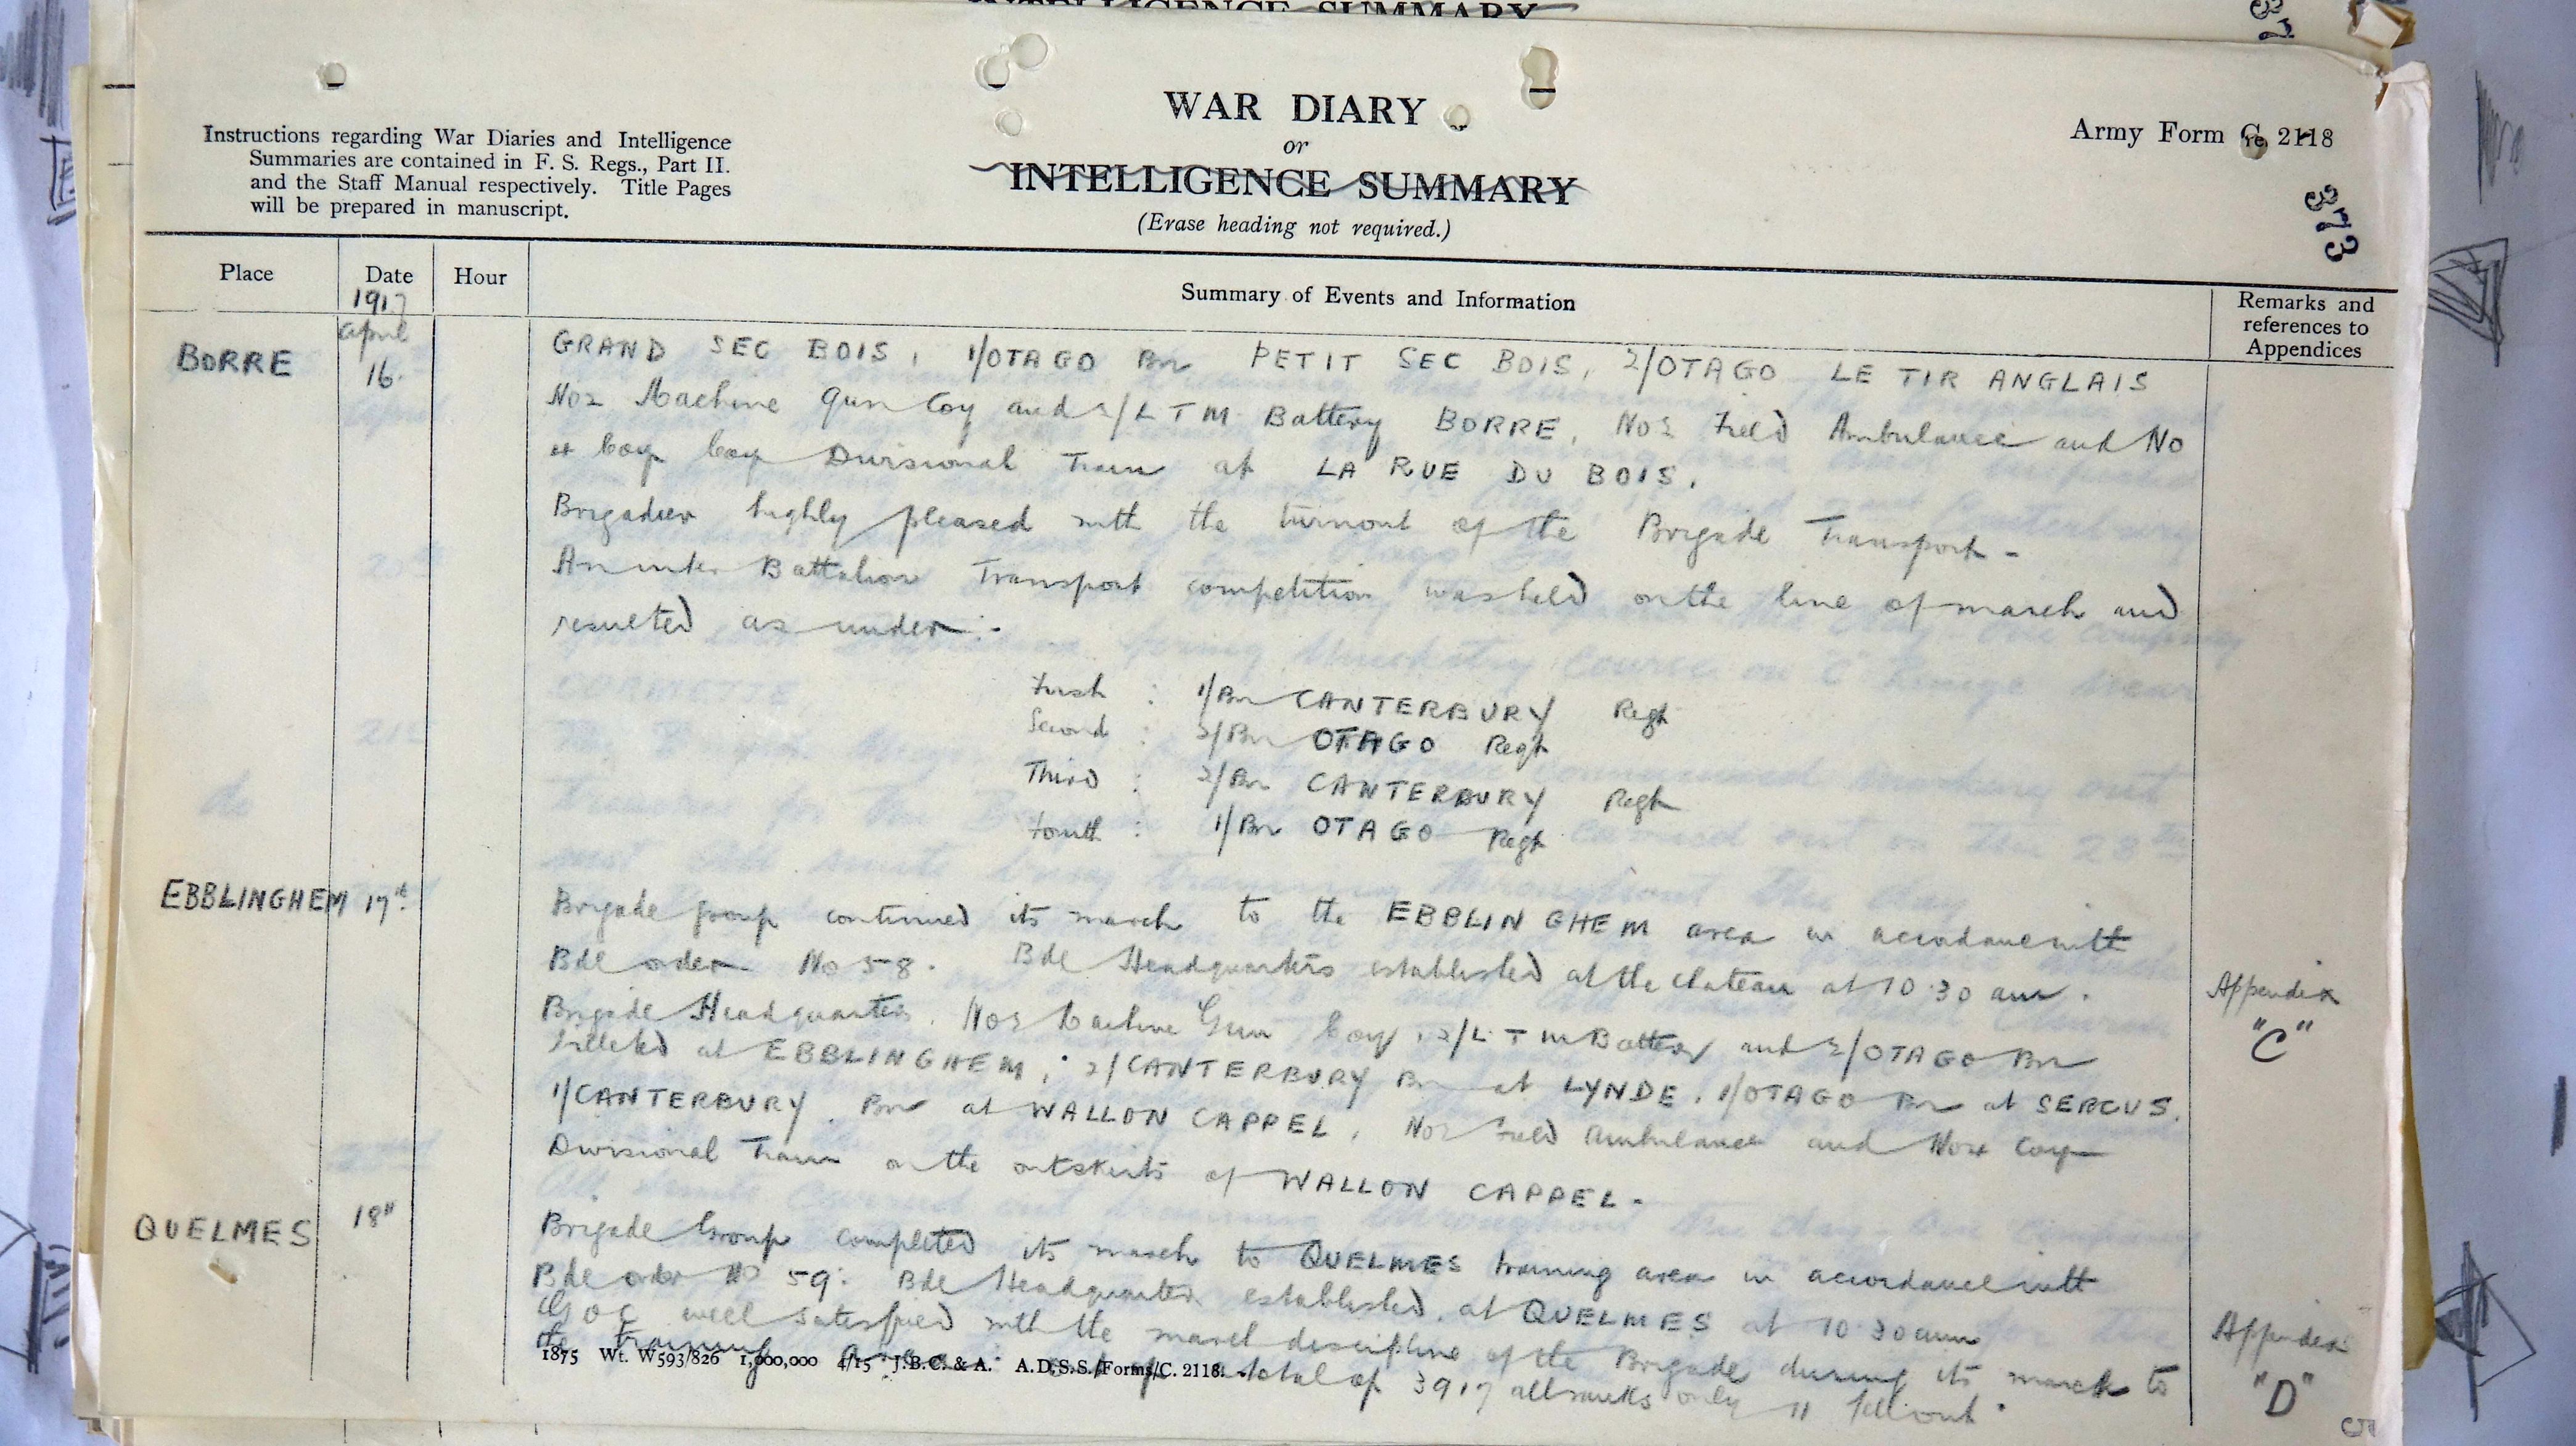 INTELLIGENCE SUMMARY
WAR DIARY
or
INTELLIGENCE SUMMARY
(Erase heading not required.)
Instructions regarding War Diaries and Intelligence
Summaries are contained in F. S. Regs., Part II.
and the Staff Manual respectively. Title Pages
will be prepared in manuscript.
Army Form C. 2118
373
Place
Date
Hour
Summary of Events and Information
Remarks and
references to
Appendices
1917
April
BORRE
16.
GRAND SEC BOIS, 1/OTAGO Bn PETIT SEC BOIS, 2/OTAGO LE TIR ANGLAIS
No2 Machine Gun Coy and 2/L T M Battery BORRE, No2 Field Ambulance and No
4 Coy Coy Divisional Train at LA RUE DU BOIS.
Brigadier highly pleased with the turnout of the Brigade Transport -
An inter Battalion Transport competition was held on the line of march and
resulted as under :-
First : 1/Bn CANTERBURY Regt
Second : 2/Bn OTAGO Regt
Third : 2/Bn CANTERBURY Regt
Fourth : 1/Bn OTAGO Regt
EBBLINGHEM 17th
Brigade group continued its march to the EBBLINGHEM area in accordance with
Bde order No 58. Bde Headquarters established at the Chateau at 10.30 am.
Appendix
"C"
Brigade Headquarters. No2 Machine Gun Coy, 2/L.T M Battery and 2/OTAGO Bn
billeted at EBBLINGHEM; 2/CANTERBURY Bn at LYNDE, 1/OTAGO Bn at SERCUS.
1/CANTERBURY. Bn at WALLON CAPPEL, No2 Field Ambulance and No4 Coy
Divisional Train on the outskirts of WALLON CAPPEL.
QUELMES
18"
Brigade Group completed its march to QUELMES training area in accordance with
Bde order No 59. Bde Headquarters established at QUELMES at 10.30am
Appendix
"D"
GOC well satisfied with the march discipline of the Brigade during its march to
the training area. out of a total of 3917 all ranks only 11 fell out.
1875 Wt. W593/826 1,000,000 4/15 J.B.C. & A. A.D.S.S./Forms/C. 2118.